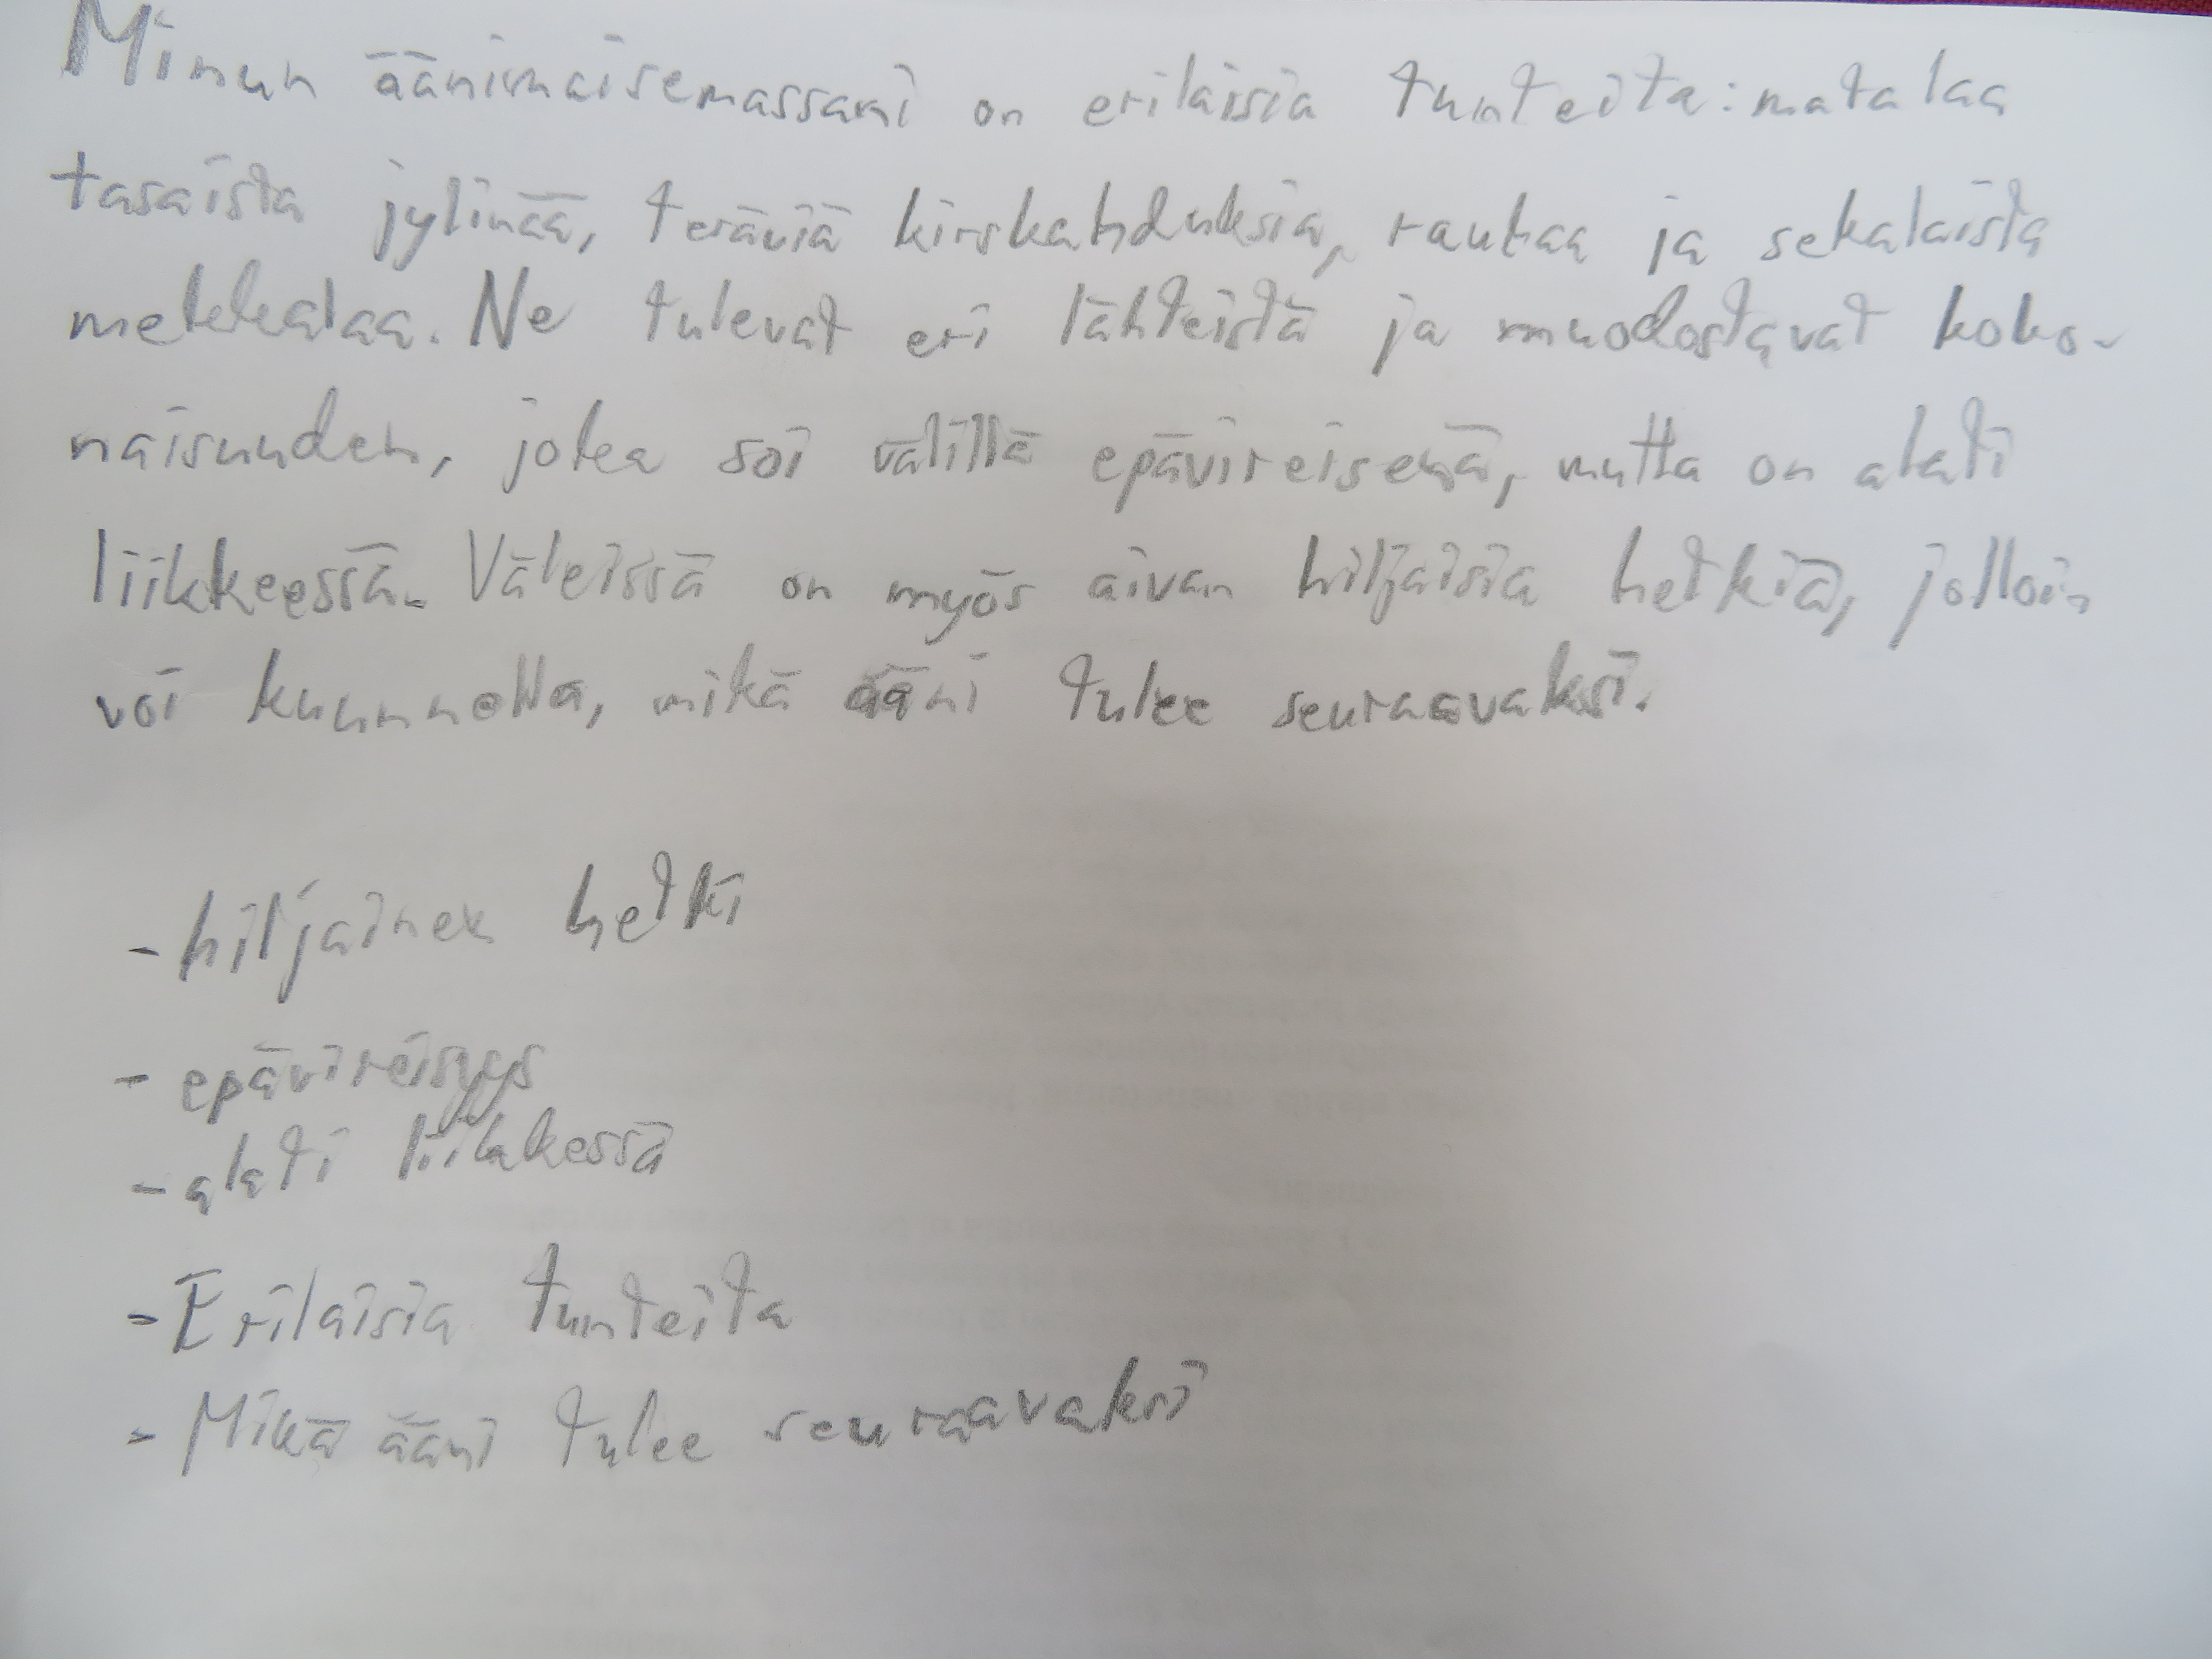 Minun äänimaisemassani on erilaisia tunteita: matalaa
tasaista jylinää, teräviä kirskahduksia, rauhaa ja sekalaista
metekalaa. Ne tulevat eri lähteistä ja muodostavat koko-
naisuuden, joka soi välillä epävireisenä, mutta on alati
liikkeessä. Väleissä on myös aivan hiljaisia hetkiä, jolloin
voi kuunnella, mikä ääni tulee seuraavaksi.
- hiljainen hetki
- epävireisyys
- alati liikkessä
- Erilaisia tunteita
- Mikä ääni tulee seuraavaksi